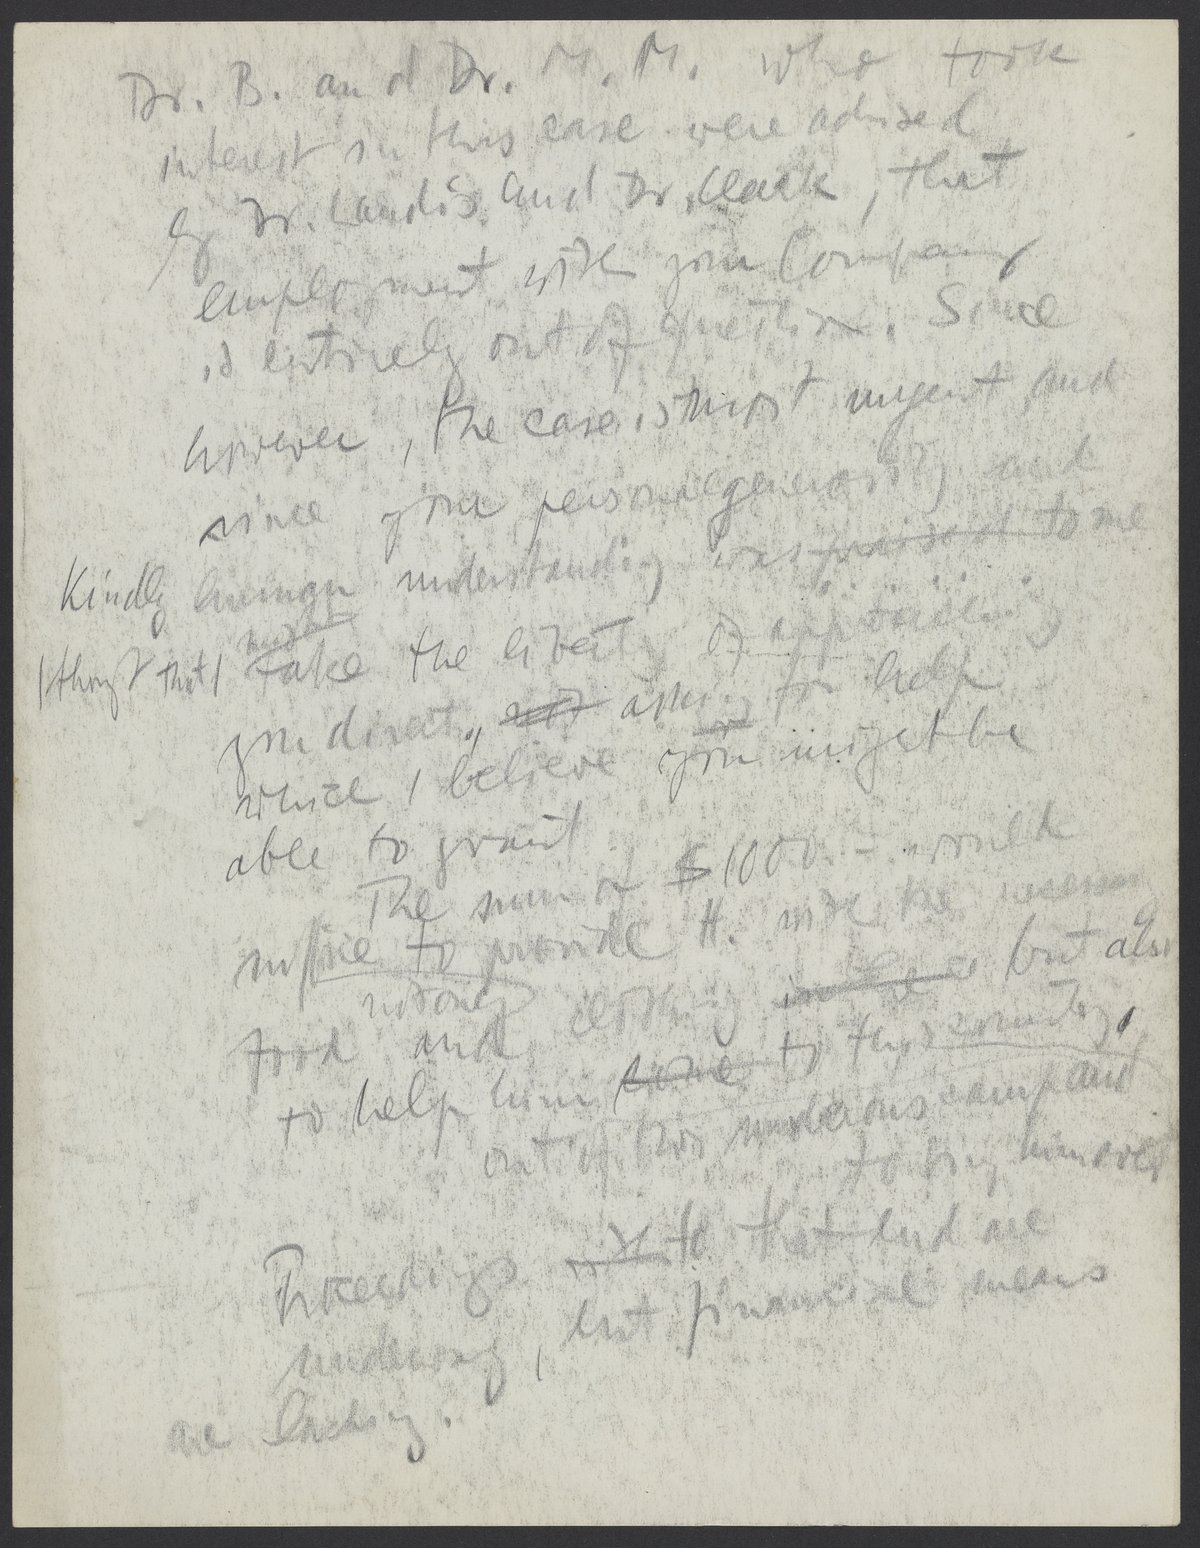 Dr. B. and Dr. M. M. who took
interest in this case were advised
by Dr. Landis and Dr. Clark, that
employment with your Company
is entirely out of question. Since
however, the case is most urgent and
since your personal generosity and
kindly human understanding was praised to me
I thought that I might take the liberty of approaching
you directly, asking for help
which I believe you might be
able to grant.
The sum of $1000.- would
suffice to provide H. with the necessary
food and clothing but also
not only
to help him to this country,
out of this murderous camp and
to bring him over
Proceedings to that end are
underway, but financial means
are lacking.